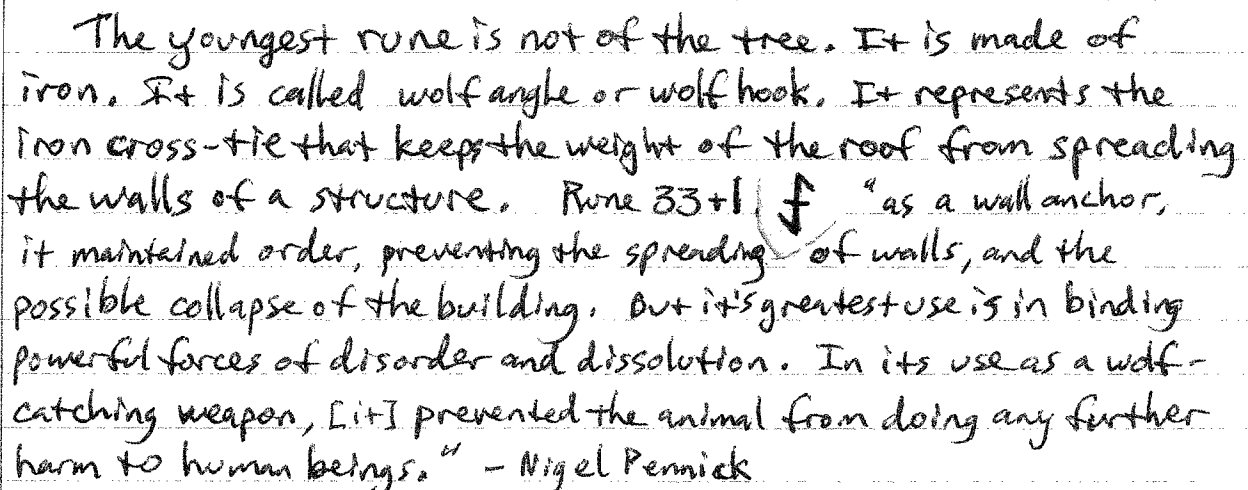 The youngest rune is not of the tree. It is made of
iron. It is called wolf angle or wolf hook. It represents the
iron cross-tie that keeps the weight of the roof from spreading
the walls of a structure. Rune 33+1 "as a wall anchor,
it maintained order, preventing the spreading of walls, and the
possible collapse of the building. But it's greatest use is in binding
powerful forces of disorder and dissolution. In its use as a wolf-
catching weapon, [it] prevented the animal from doing any further
harm to human beings." - Nigel Pennick